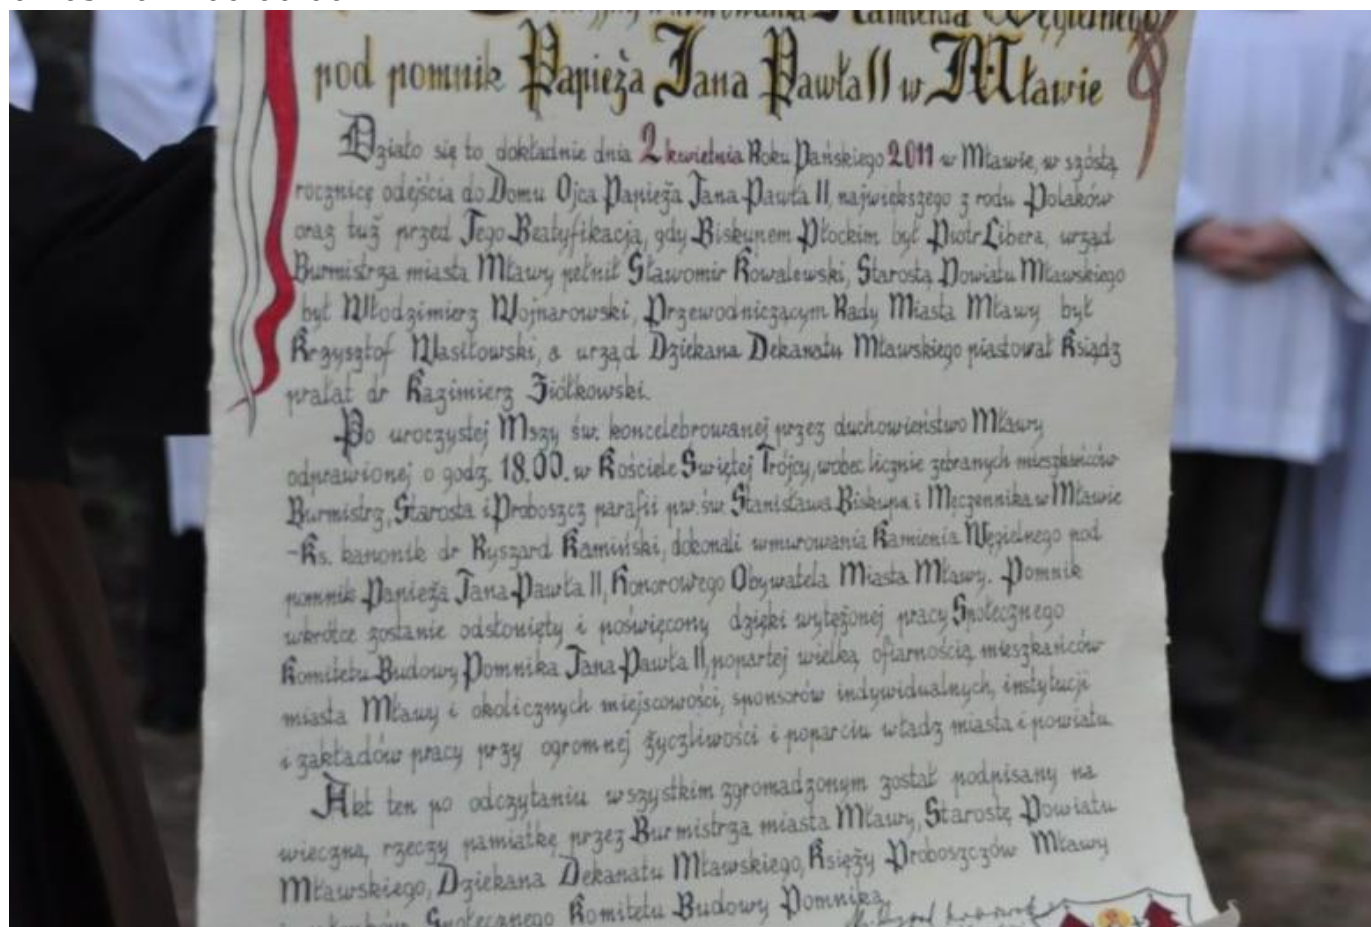 wmurowania Kamienia Węgielnego
pod pomnik Papieża Jana Pawła II w Mławie
Działo się to dokładnie dnia 2 kwietnia Roku Pańskiego 2011 w Mławie, w szóstą
rocznicę odejścia do Domu Ojca Papieża Jana Pawła II, największego z rodu Polaków
oraz tuż przed Jego Beatyfikacją, gdy Biskupem Płockim był Piotr Libera, urząd
Burmistrza miasta Mławy pełnił Sławomir Kowalewski, Starostą Powiatu Mławskiego
był Włodzimierz Wojnarowski, Przewodniczącym Rady Miasta Mławy był
Krzysztof Wasiłowski, a urząd Dziekana Dekanatu Mławskiego piastował Ksiądz
prałat dr Kazimierz Ziółkowski.
Po uroczystej Mszy św. koncelebrowanej przez duchowieństwo Mławy
odprawionej o godz. 18.00. w Kościele Świętej Trójcy, wobec licznie zebranych mieszkańców
Burmistrz, Starosta i Proboszcz parafii pw. św. Stanisława Biskupa i Męczennika w Mławie
-Ks. kanonik dr Ryszard Kamiński, dokonali wmurowania Kamienia Węgielnego pod
pomnik Papieża Jana Pawła II, Honorowego Obywatela Miasta Mławy. Pomnik
wkrótce zostanie odsłonięty i poświęcony dzięki wytężonej pracy Społecznego
Komitetu Budowy Pomnika Jana Pawła II, popartej wielką ofiarnością mieszkańców
miasta Mławy i okolicznych miejscowości, sponsorów indywidualnych, instytucji
i zakładów pracy przy ogromnej życzliwości i poparciu władz miasta i powiatu.
Akt ten po odczytaniu wszystkim zgromadzonym został podpisany na
wieczną rzeczy pamiątkę przez Burmistrza miasta Mławy, Starostę Powiatu
Mławskiego, Dziekana Dekanatu Mławskiego, Księży Proboszczów Mławy
Społecznego Komitetu Budowy Pomnika